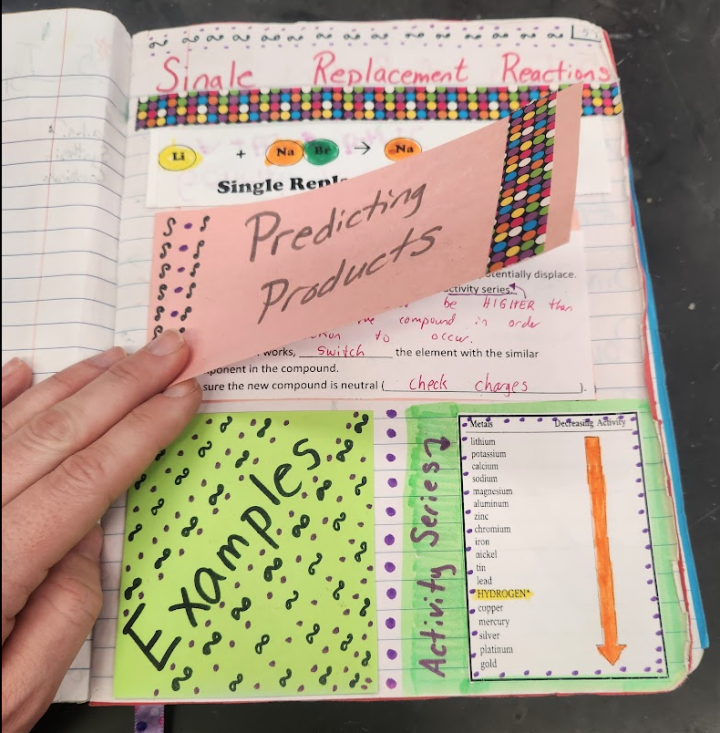 Single Replacement Reactions
Li + Na Br → Na
Single
Predicting
Products
potentially displace.
activity series.
be HIGHER than
compound in order
to occur.
works, switch the element with the similar
in the compound.
sure the new compound is neutral ( check charges ).
Examples
Activity Series
Metals Decreasing Activity
lithium
potassium
calcium
sodium
magnesium
aluminum
zinc
chromium
iron
nickel
tin
lead
HYDROGEN*
copper
mercury
silver
platinum
gold